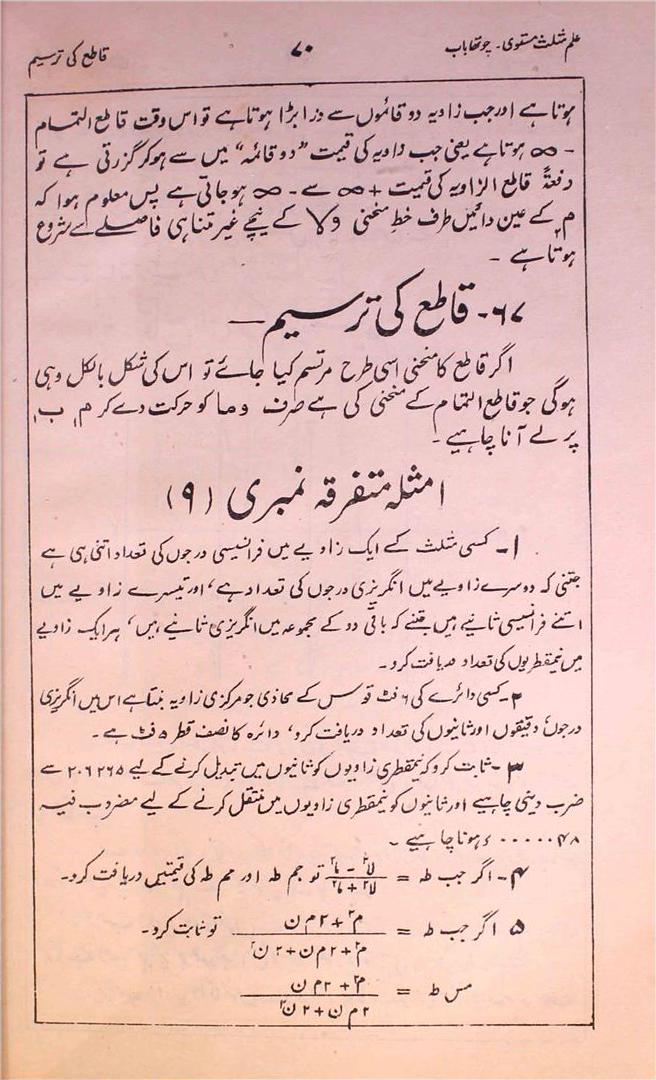 علم مثلث مستوی۔ چوتھا باب
۷۰
قاطع کی ترسیم
ہوتا ہے اور جب زاویہ دو قائموں سے ذرا بڑا ہوتا ہے تو اس وقت قاطع التمام
- ∞ ہوتا ہے یعنی جب زاویہ کی قیمت "دو قائمہ" میں سے ہو کر گزرتی ہے تو
دفعۃً قاطع الزاویہ کی قیمت + ∞ سے - ∞ ہو جاتی ہے پس معلوم ہوا کہ
م۲ کے عین دائیں طرف خطِ منحنی و لا کے نیچے غیر متناہی فاصلے سے شروع
ہوتا ہے ۔
۶۷۔ قاطع کی ترسیم —
اگر قاطع کا منحنی اسی طرح مرتسم کیا جائے تو اس کی شکل بالکل وہی
ہوگی جو قاطع التمام کے منحنی کی ہے صرف و ما کو حرکت دے کر م۱ ب۱
پر لے آنا چاہیے ۔
امثلہ متفرقہ نمبری (۹)
۱۔ کسی مثلث کے ایک زاویے میں فرانسیسی درجوں کی تعداد اتنی ہی ہے
جتنی کہ دوسرے زاویے میں انگریزی درجوں کی تعداد ہے، اور تیسرے زاویے میں
اتنے فرانسیسی ثانیے ہیں جتنے کہ باقی دو کے مجموعہ میں انگریزی ثانیے ہیں، ہر ایک زاویے
میں نیمقطریوں کی تعداد دریافت کرو۔
۲۔ کسی دائرے کی ۶ فٹ قوس کے محاذی جو مرکزی زاویہ بنتا ہے اس میں انگریزی
درجوں دقیقوں اور ثانیوں کی تعداد دریافت کرو، دائرہ کا نصف قطر ۵ فٹ ہے۔
۳۔ ثابت کرو کہ نیمقطری زاویوں کو ثانیوں میں تبدیل کرنے کے لیے ۲۰۶۲۶۵ سے
ضرب دینی چاہیے اور ثانیوں کو نیمقطری زاویوں میں منتقل کرنے کے لیے مضروب فیہ
۰۰۰۰۰۴۸ء ہونا چاہیے ۔
۴۔ اگر جب طہ = (لا۲ - ما۲)/(لا۲ + ما۲) تو جم طہ اور مم طہ کی قیمتیں دریافت کرو۔
۵ اگر جب طہ = (م۲ + ۲ م ن)/(م۲ + ۲ م ن + ۲ ن۲) تو ثابت کرو۔
مس طہ = (م۲ + ۲ م ن)/(۲ م ن + ۲ ن۲)